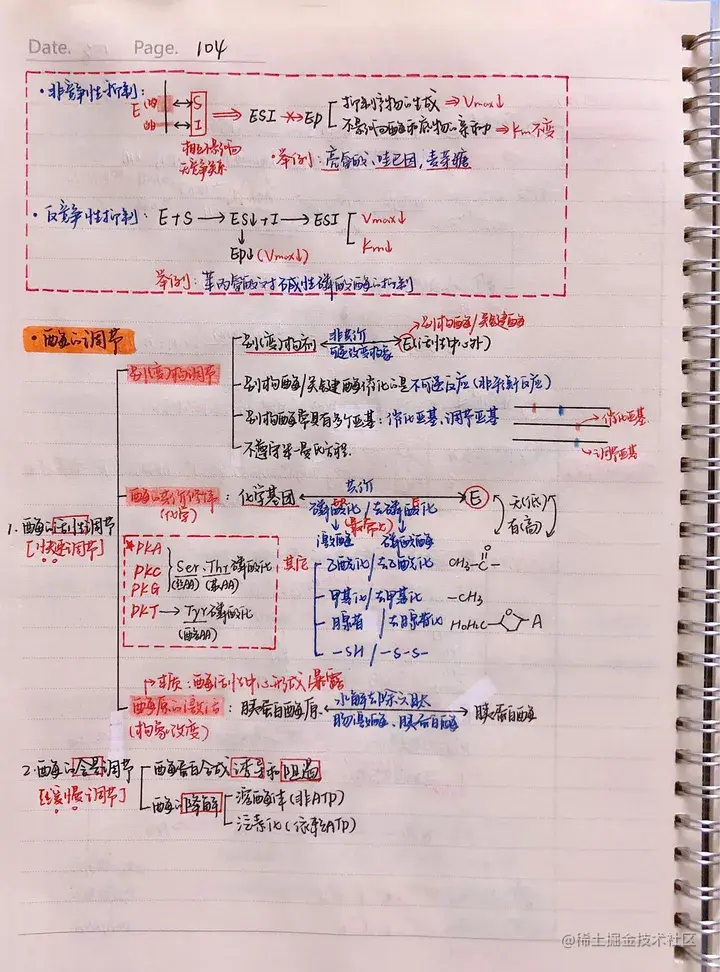 Date. Page. 104
·非竞争性抑制:
E S ⇒ ESI ⇸ EP 抑制产物的生成 ⇒ Vmax↓
I 不影响酶和底物的亲和力 ⇒ Km不变
相互不影响
无竞争关系
·举例: 亮氨酸, 哇巴因, 麦芽糖
·反竞争性抑制: E+S → ES↓+I → ESI Vmax↓
Km↓
EP↓(Vmax↓)
举例: 苯丙氨酸对碱性磷酸酶的抑制
·酶的调节
别构酶/关键酶
别(变)构剂 非共价 E(活性中心外)
可逆改变构象
别(变)构调节
别构酶/关键酶催化的是不可逆反应(非平衡反应)
别构酶常具有多个亚基: 催化亚基、调节亚基
→催化亚基
→调节亚基
不遵守米-曼氏方程.
酶的共价修饰: 化学基团 共价 E 无(低)
有(高)
(化学)
磷酸化/去磷酸化
(最常见)
激酶 磷酸酶
1.酶的活性调节
[快速调节]
*PKA
PKC Ser.Thr磷酸化
PKG (丝AA) (苏AA)
PKT → Tyr磷酸化
(酪AA)
其它
乙酰化/去乙酰化 CH₃-C- O
甲基化/去甲基化 -CH₃
腺苷/去腺苷化 HOH₂C- O A
-SH/-S-S-
→本质: 酶活性中心形成/暴露
酶原的激活: 胰蛋白酶原 水解去除六肽 胰蛋白酶
肠激酶、胰蛋白酶
(构象改变)
2.酶的含量调节 酶蛋白合成诱导和阻遏
[缓慢调节] 酶的降解 溶酶体(非ATP)
泛素化(依赖ATP)
@稀土掘金技术社区